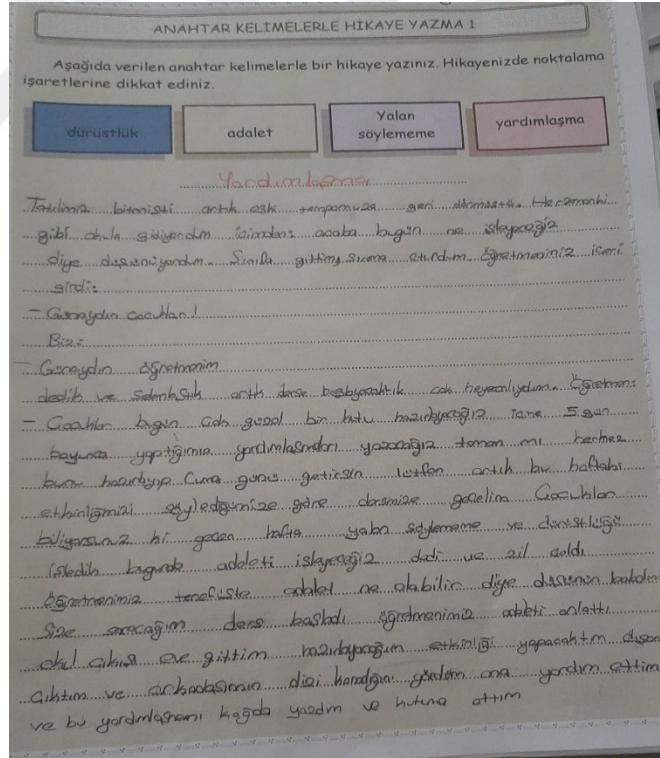 ANAHTAR KELİMELERLE HİKAYE YAZMA 1
Aşağıda verilen anahtar kelimelerle bir hikaye yazınız. Hikayenizde noktalama
işaretlerine dikkat ediniz.
dürüstlük
adalet
Yalan
söylememe
yardımlaşma
Yardımlaşma
bitmişti artık eski tempomuza geri dönmüştük. Her zamanki
gibi okula gidiyordum içimden: acaba bugün ne işleyeceğiz
diye düşünüyordum. Sınıfa gittim, sırama oturdum. Öğretmenimiz içeri
girdi:
- Günaydın çocuklar!
Biz:
- Günaydın öğretmenim
dedik ve artık derse çok heyecanlıydım. Öğretmen:
- Çocuklar bugün çok güzel bir kutu hazırlayacağız içine 5 gün
boyunca yaptığımız yardımlaşmaları yazacağız tamam mı herkez
bunu hazırlayıp Cuma günü getirsin lütfen artık bu haftaki
etkinliğimizi söylediğimize göre dersimize gelelim Çocuklar
biliyorsunuz ki geçen hafta yalan söylememe ve dürüstlüğü
işledik bugünde adaleti işleyeceğiz dedi ve zil çaldı
Öğretmenimiz tenefüste adalet ne olabilir diye düşünün bakalım
Size soracağım ders başladı öğretmenimiz adaleti anlattı
okul çıkışı eve gittim hazırlayacağım etkinliği dışarı
çıktım ve arkadaşımın dizi kanadığını gördüm ona yardım ettim
ve bu yardımlaşmamı kağıda yazdım ve kutuma attım